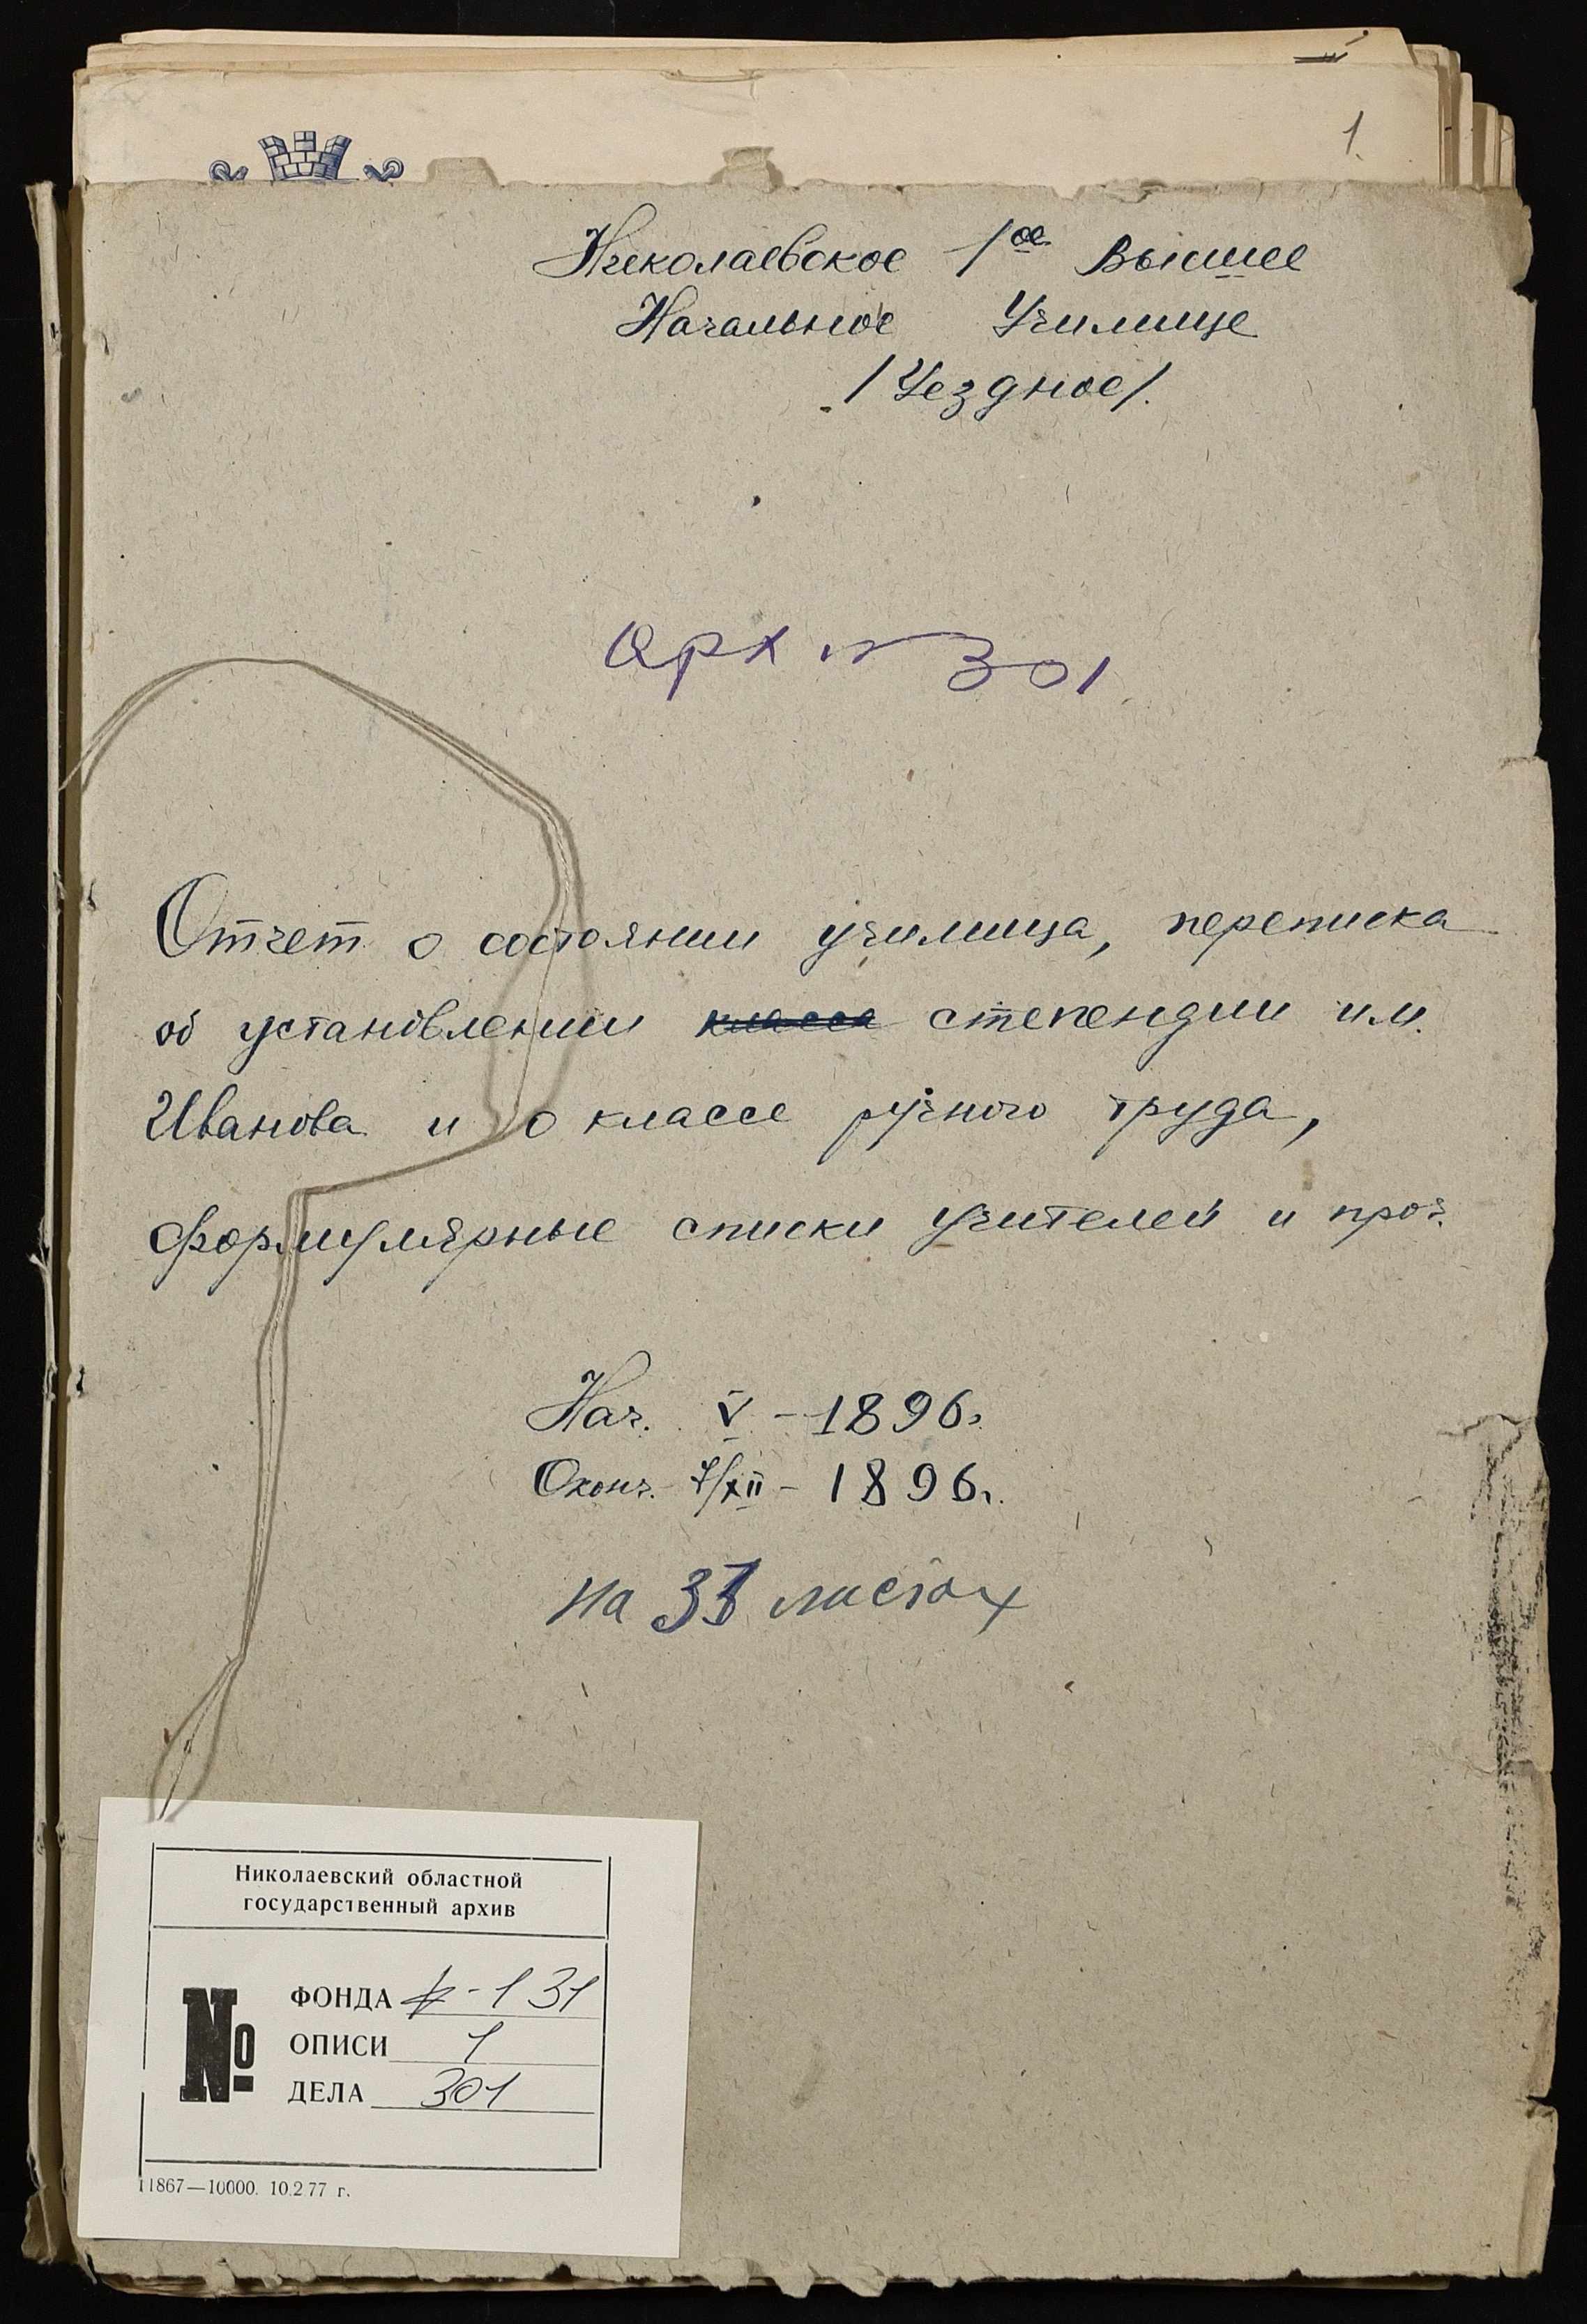 1.
Николаевское 1ое Высшее
Начальное Училище
/Уездное/.
Арх № 301
Отчет о состоянии училища, переписка
об установлении класса степендии им.
Иванова и о классе ручного труда,
формулярные списки учителей и проч.
Нач. V - 1896г.
Оконч. 7/XII - 1896г.
на листах
Николаевский областной
государственный архив
№
ФОНДА -131
ОПИСИ 1
ДЕЛА 301
11867—10000. 10.2.77 г.